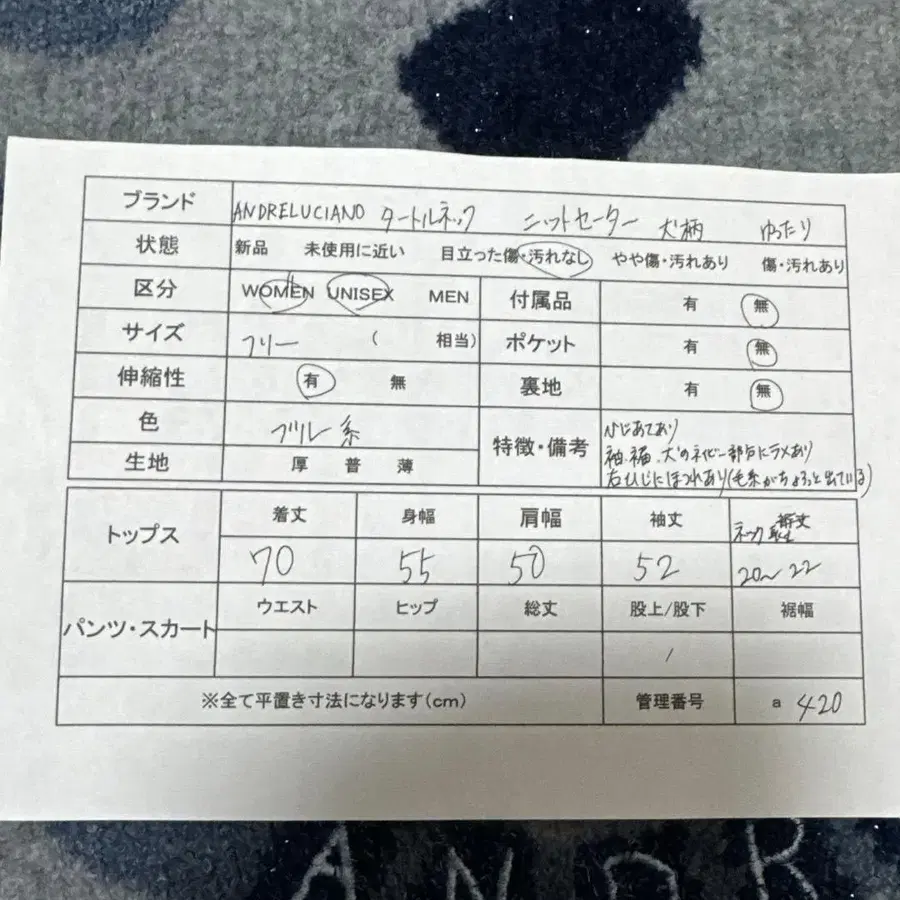 ブランド ANDRELUCIANO タートルネック ニットセーター 犬柄 ゆったり
状態 新品 未使用に近い 目立った傷・汚れなし やや傷・汚れあり 傷・汚れあり
区分 WOMEN UNISEX MEN 付属品 有 無
サイズ フリー ( 相当) ポケット 有 無
伸縮性 有 無 裏地 有 無
色 ブルー系
生地 厚 普 薄
特徴・備考 ひじあてあり
袖、裾、犬のネイビー部分にラメあり
右ひじにほつれあり(毛糸がちょろっと出ている)
トップス 着丈 身幅 肩幅 袖丈 ネック
70 55 50 52 20〜22
パンツ・スカート ウエスト ヒップ 総丈 股上/股下 裾幅
/
※全て平置き寸法になります(cm) 管理番号 a 420
A N D R